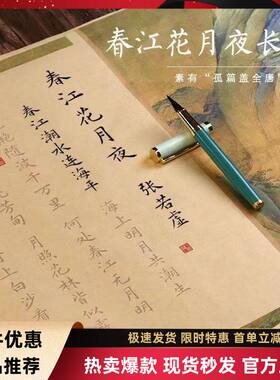 春江花月夜长
素有“孤篇盖全唐
春江花月夜
张若虚
春江潮水连海平
海上明月共潮生
滟随波千万里
何处春江无月明
月照花林皆似
上白沙看
优惠
极速发货 限时特惠 首单
品推荐
热卖爆款 现货秒发 官方